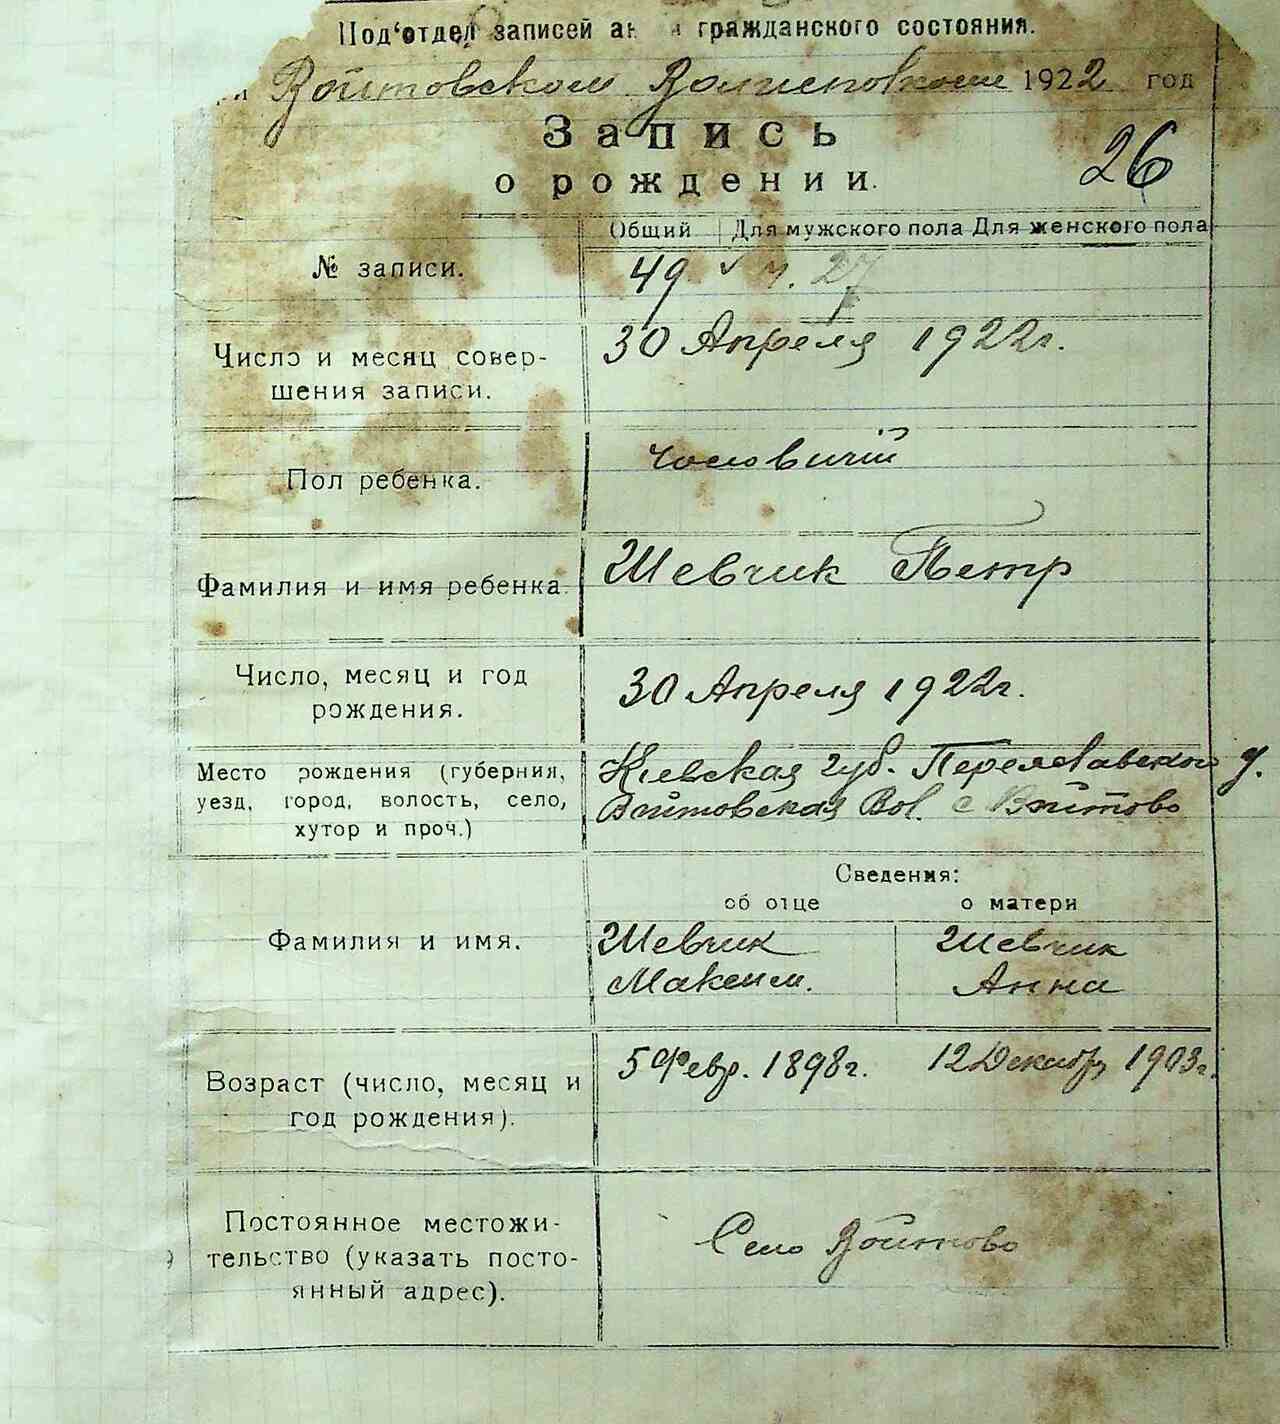 Под'отдел записей ак гражданского состояния.
Войтовском Волисполкоме 1922 год
Запись
о рождении.
26
Общий Для мужского пола Для женского пола
№ записи. 49 ч. 27
Число и месяц совер- 30 Апреля 1922г.
шения записи.
Пол ребенка. Чоловичий
Фамилия и имя ребенка. Шевчик Петр
Число, месяц и год 30 Апреля 1922г.
рождения.
Место рождения (губерния, Киевская губ. Переяславского у.
уезд, город, волость, село, Войтовская Вол. с Войтово
хутор и проч.)
Сведения:
об отце о матери
Фамилия и имя. Шевчик Шевчик
Максим. Анна
Возраст (число, месяц и 5 Февр. 1898г. 12 Декабр 1903г.
год рождения).
Постоянное местожи-
тельство (указать посто- Село Войтово
янный адрес).